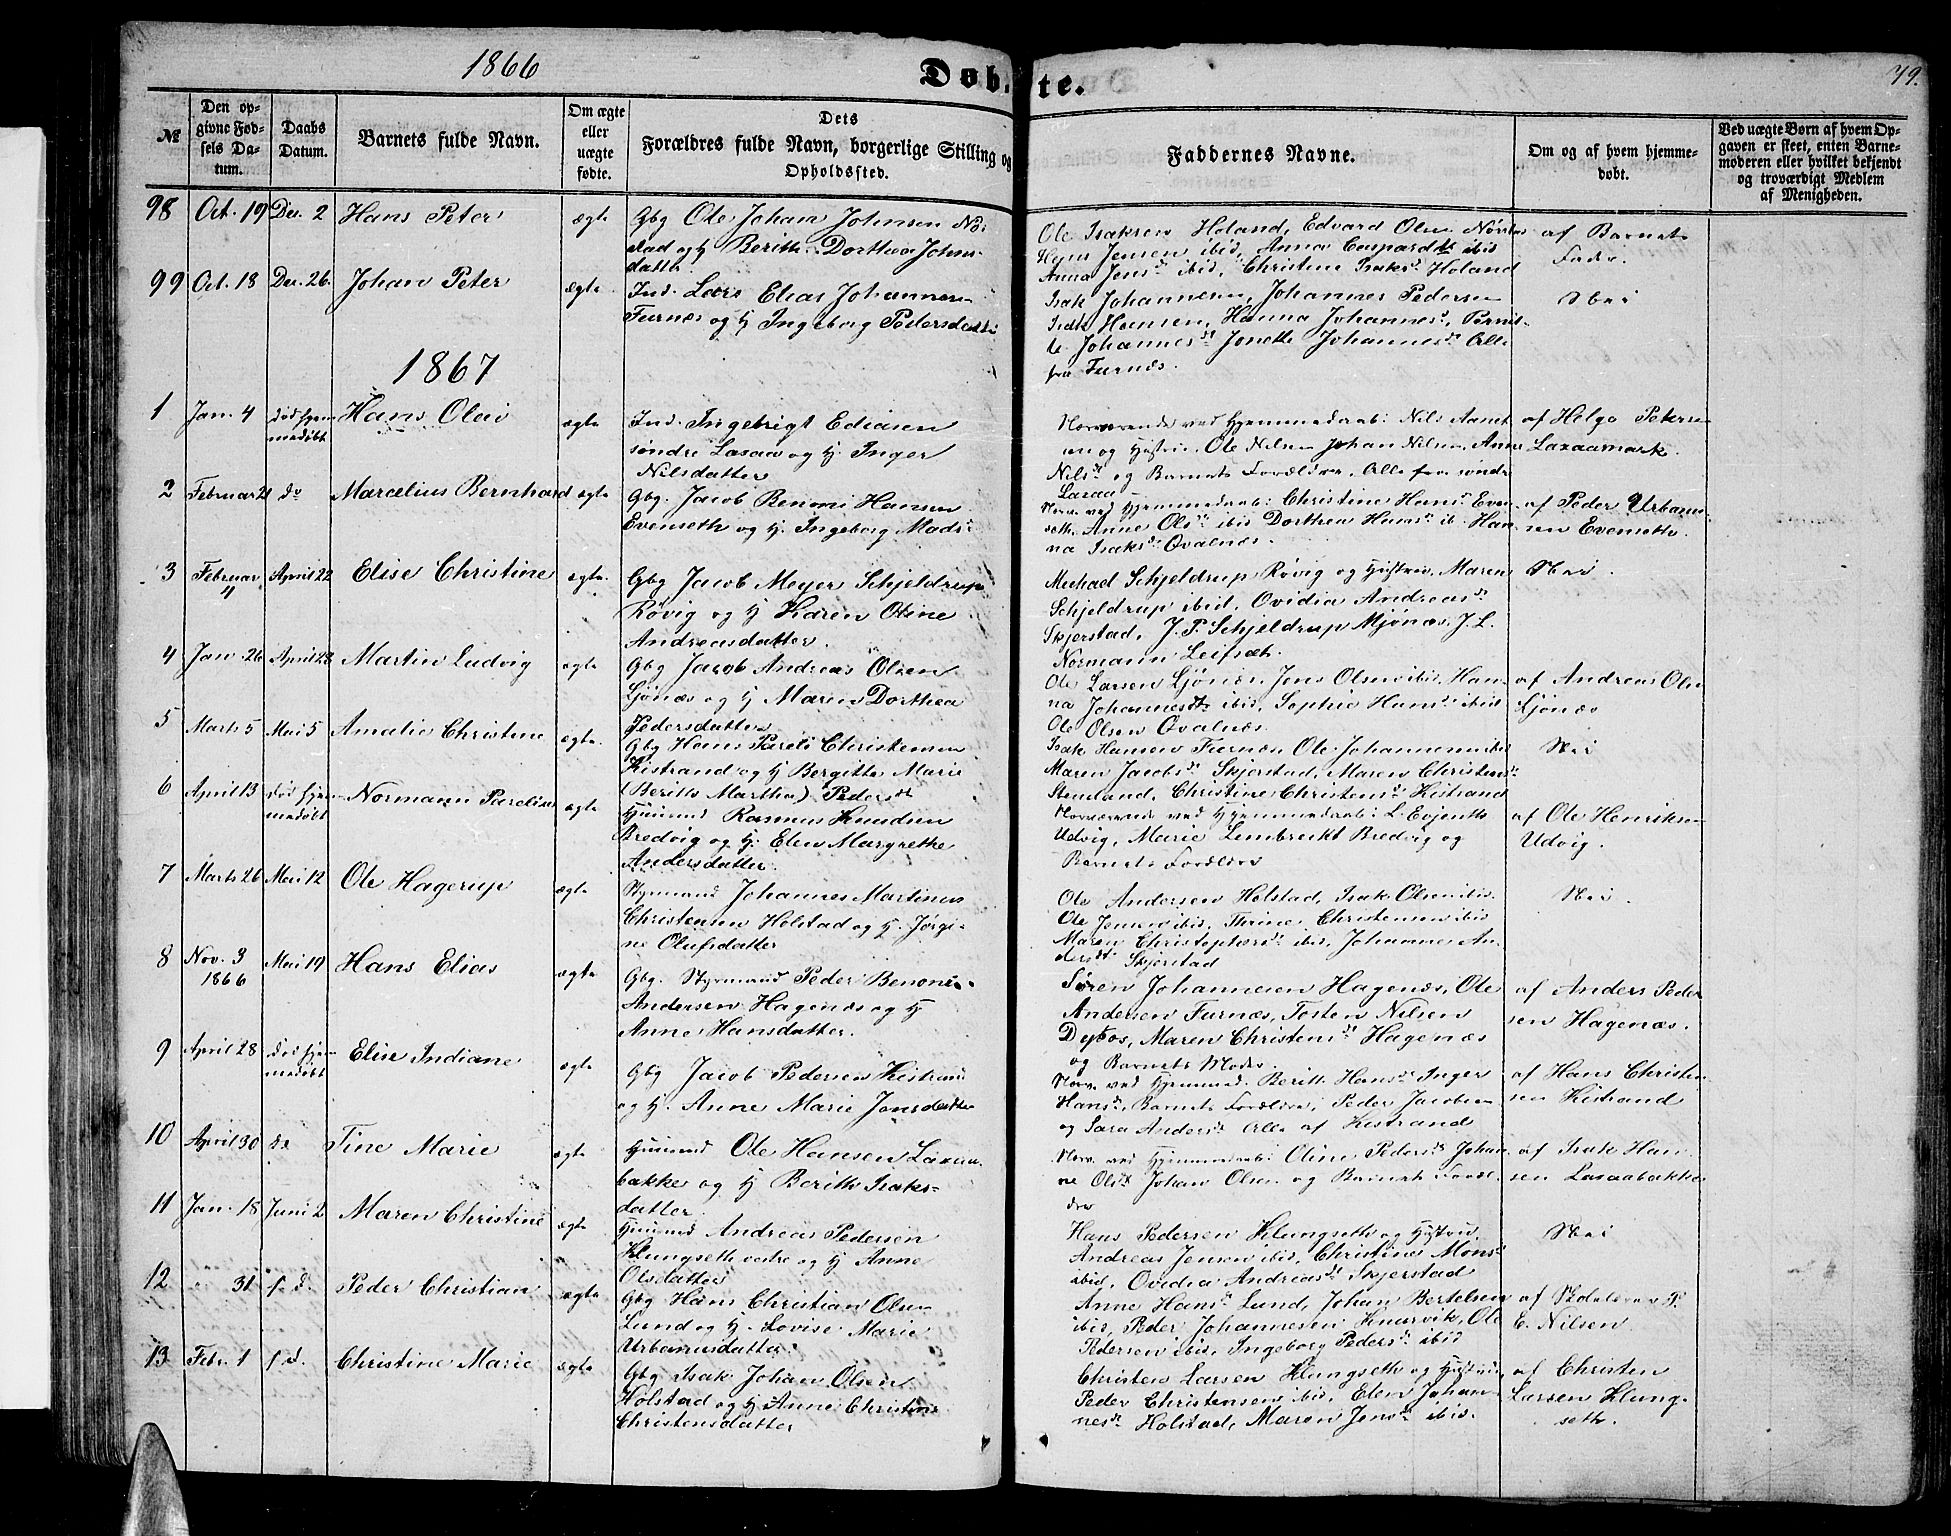 1866
Døbte.
79.
№
Den op-
givne Fød-
sels Da-
tum.
Daabs
Datum.
Barnets fulde Navn.
Om ægte
eller
uægte
fødte.
Dets
Forældres fulde Navn, borgerlige Stilling og
Opholdssted.
Faddernes Navne.
Om og af hvem hjemme-
døbt.
Ved uægte Børn af hvem Op-
gaven er skeet, enten Barne-
moderen eller hvilket bekjendt
og troværdigt Medlem
af Menigheden.
98 Oct. 19 Dec. 2 Hans Peter ægte
Gbg Ole Johan Johnsen
stad og Hj Berith Dorthea Johns-
datter
Ole Isaksen Holand, Edvard Olsen
Jensen ibid, Anna Caspardtr ibid
Anna Jensd ibid, Christine Isaksd Holand
af Barnets
Fader.
99 Oct. 18 Dec. 26. Johan Peter ægte
Ind. Lars Elias Johannesen
Furnæs og Hj Ingeborg Pedersdatter
Isak Johannesen, Johannes Pedersen
Isak Hansen, Hanna Johannesd, Pernil-
le Johannesd Jonette Johannesd Alle
fra Furnæs.
Nei
1867
1 Jan. 4 død hjem
medøbt Hans Olai ægte
Ind. Ingebrigt Edissen
søndre Laxaa og Hj. Inger
Nilsdatter
Nærværende ved Hjemmedaab: Nils Aamot
og Hustrue, Ole Nilsen Johan Nilsen, Anne
Nilsd og Barnets Forældre. Alle fra søndre
Laxaa
af Helge Petersen
Laxaamark.
2 Februar 21 do Marcelius Bernhard ægte
Gbg. Jacob Benoni Hansen
Evenseth og Hj. Ingeborg Madsd
Nærv. ved Hjemmedaab: Christine Hansd Even-
seth. Anne Olsd ibid Dorthea Hansd ib. Han-
na Isaksd Qvalnæs.
af Peder Urban-
sen Evenseth.
3 Februar
4 April 22 Elise Christine ægte.
Gbg Jacob Meyer Schjeldrup
Røvig og Hj Karen Oline
Andreasdatter.
Michael Schjeldrup Røvig og Hustru, Maren
Schjeldrup ibid, Ovidia Andreasd
Skjerstad, J. P. Schjeldrup Mjønæs, J. L.
Normann Leifsæt.
Nei.
4 Jan. 26 April 28 Martin Ludvig ægte
Gbg Jacob Andreas Olsen
Ljønæs og Hj Maren Dorthea
Pedersdatter
Ole Larsen Ljønæs, Jens Olsen ibid, Han-
na Johannesdtr ibid, Sophie Hansd ibid
Ole Olsen Qvalnæs
af Andreas Olsen
Ljønæs
5 Marts 5 Mai 5 Amalie Christine ægte.
Gbg Hans Pareli Christensen
Kistrand og Hj Bergitte Marie
(Berith Martha) Pedersd
Isak Hansen Furnæs, Ole Johannesen ibid
Maren Jacobsd Skjerstad, Maren Christensd
Christine Christensd Kistrand
Nei
6 April 13 død hjem
medøbt Normann Parelius ægte
Huusmd Rasmus Knudsen
Bredvig og Hj. Elen Margrethe
Andersdatter.
Nærværende ved Hjemmedaab: L. Evjenth
Udvig, Marie Lembreikt Bredvig og
Barnets Forældre
af Ole Henriksen
Udvig.
7 Marts 26 Mai 12 Ole Hagerup ægte
Styrmand Johannes Martinus
Christensen Holstad og Hj. Jørgi-
ne Olufsdatter
Ole Andersen Holstad, Isak Olsen ibid.
Ole Jensen ibid, Thrine Christensen ibid
Maren Christophersd ibid, Johanne An-
dersd Skjerstad
Nei.
8 Nov. 3
1866 Mai 19 Hans Elias ægte
Gbg. Styrmand Peder Benoni
Andersen Hagenæs og Hj
Anne Hansdatter.
Søren Johannesen Hagenæs, Ole
Andersen Furnæs, Tosten Nilsen
Maren Christensd Hagenæs
og Barnets Moder.
af Anders Peder
sen Hagenæs.
9 April 28 død hjem
medøbt Elise Indiane ægte
Gbg Jacob Pedersen Kistrand
og Hj. Anne Marie Jensdatter
Nærv. ved Hjemmed. Berith Hansd Inger
Hansd, Barnets Forældre, Peder Jacobsen
og Sara Andersd Alle af Kistrand
af Hans Christen
sen Kistrand
10 April 30 do Tine Marie ægte
Huusmd Ole Hansen Laxaa-
bakke og Hj Berith Isaks-
datter.
Nærv. ved Hjemmedaab: Oline Pedersd Johan-
ne Olsd Johan Olsen og Barnets Foræl-
dre
af Isak Han
sen Laxaabakke
11 Jan. 18 Juni 2 Maren Christine ægte
Huusmd Andreas Pedersen
Klungseth vestre og Hj Anne
Olsdatter
Hans Pedersen Klungseth og Hustru
Andreas Jensen ibid, Christine Monsd
ibid, Ovidia Andreasd Skjerstad
Nei
12 " 31 s. d. Peder Christian ægte
Gbg Hans Christian Olsen
Lund og Hj. Lovise Marie
Urbanusdatter
Anne Hansd Lund, Johan Bertelsen
ibid, Peder Johannesen Knarvik, Ole
Pedersen ibid, Ingeborg Pedersd ibid
af Skolelærer P.
C. Nilsen
13 Febr. 1 s. d. Christine Marie ægte
Gbg Isak Johan Olsen
Holstad og Hj Anne Christine
Christensdatter
Christen Larsen Klungseth og Hustru,
Peder Christensen ibid, Elen Johan-
nesd Holstad, Maren Jensd ibid.
af Christen
Larsen Klung-
seth.